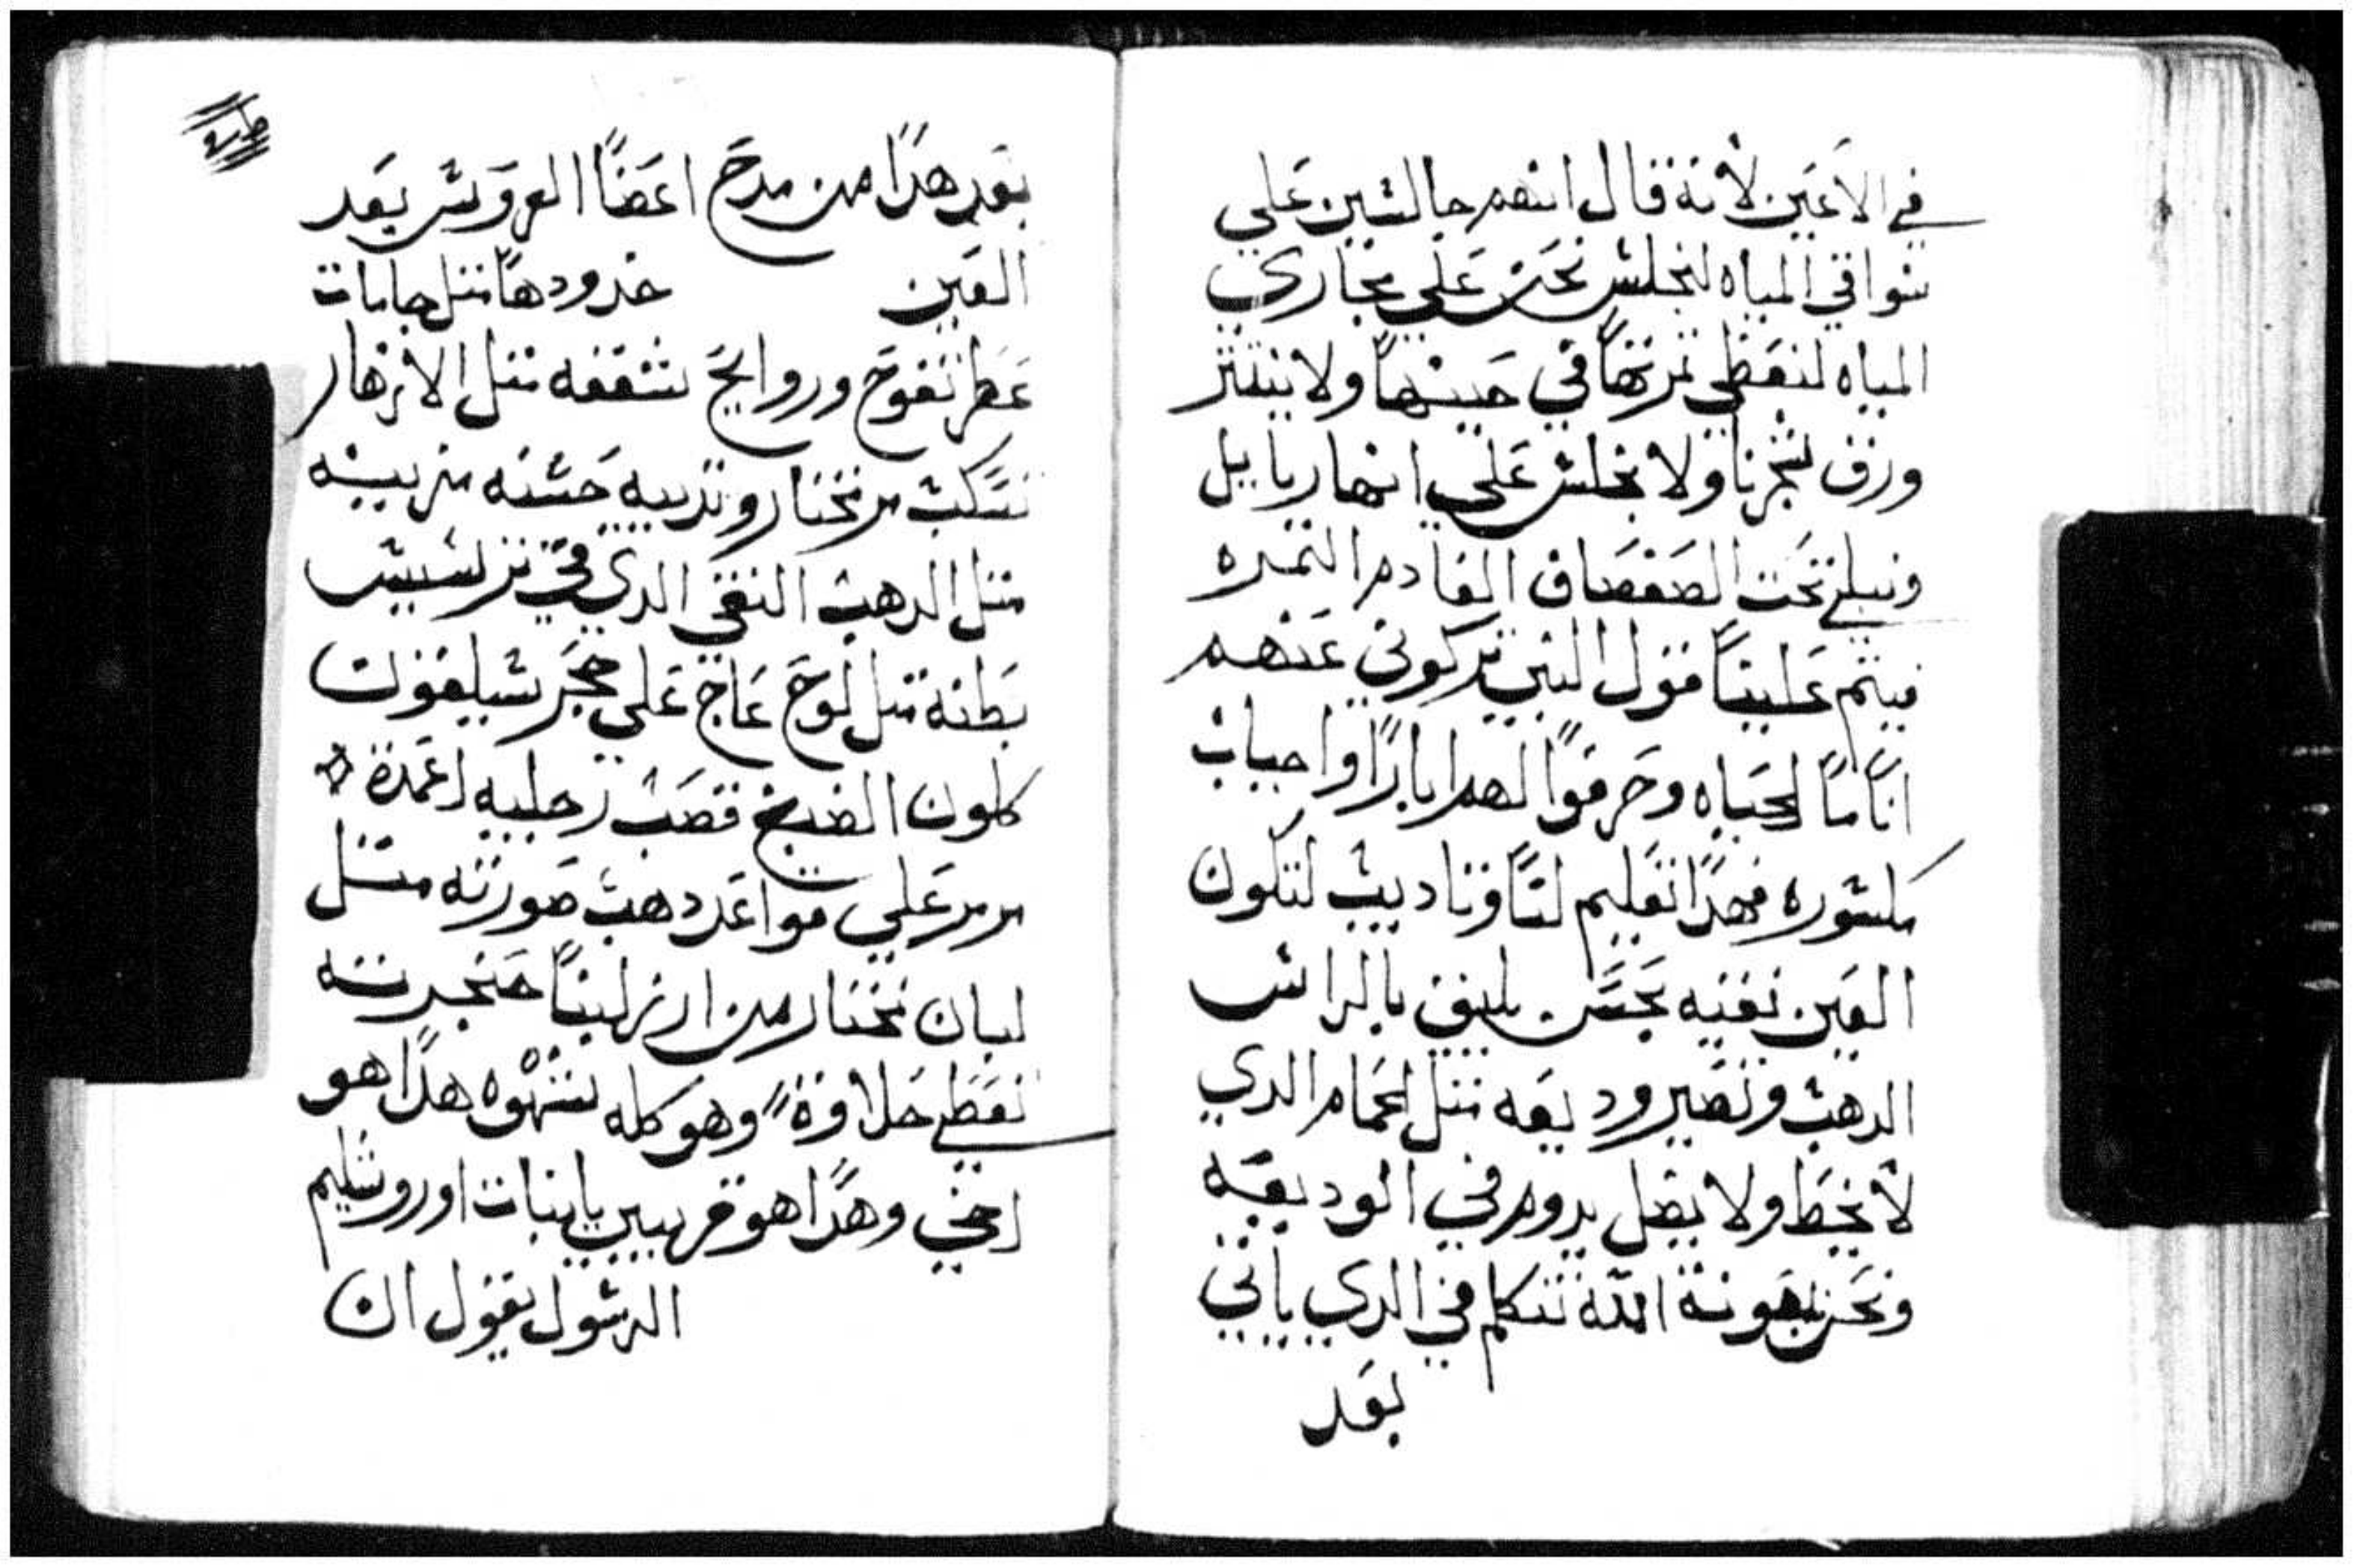 في الاعين لانه قال انهم جالسين علي
سواقي المياه لنجلس نحن علي مجاري
المياه لنعطي ثمرتها في حينها ولا ينتثر
ورق شجرنا ولا نجلس علي انهار بابل
ونبلي تحت الصفصاف العادم الثمره
فيتم علينا قول النبي تركوني عنهم
انا ما الحياه وحرفوا لهم ابارا واجباب
مكسوره فهدا تعليم لنا وتاديب لتكون
العين نقيه بحسن يليق بالراس
الدهب وتصير وديعه مثل الحمام الدي
لا يخط ولا يضل يدوم في الوديعه
ونحن بمعونة الله نتكلم في الدي ياتي
بعد
بعد هدا من مدح اعضا العروس بعد
العين خدودها مثل جامات
عطر تفوح وروايح شفقه مثل الازهار
تسكب مر مختار وتدييه حسنه مزينه
مثل الدهب النقي الدي في ترسيس
بطنه مثل لوح عاج علي حجر سيلقون
كلون الصبح قصب رجليه اعمدة
مرمر علي قواعد دهب صورته مثل
لبان مختار من ارز لبنا حنجرته
تعطي حلاوة وهو كله شهوه هدا هو
اخي وهدا هو قريبي يا بنات اوروشليم
الرسول يقول ان